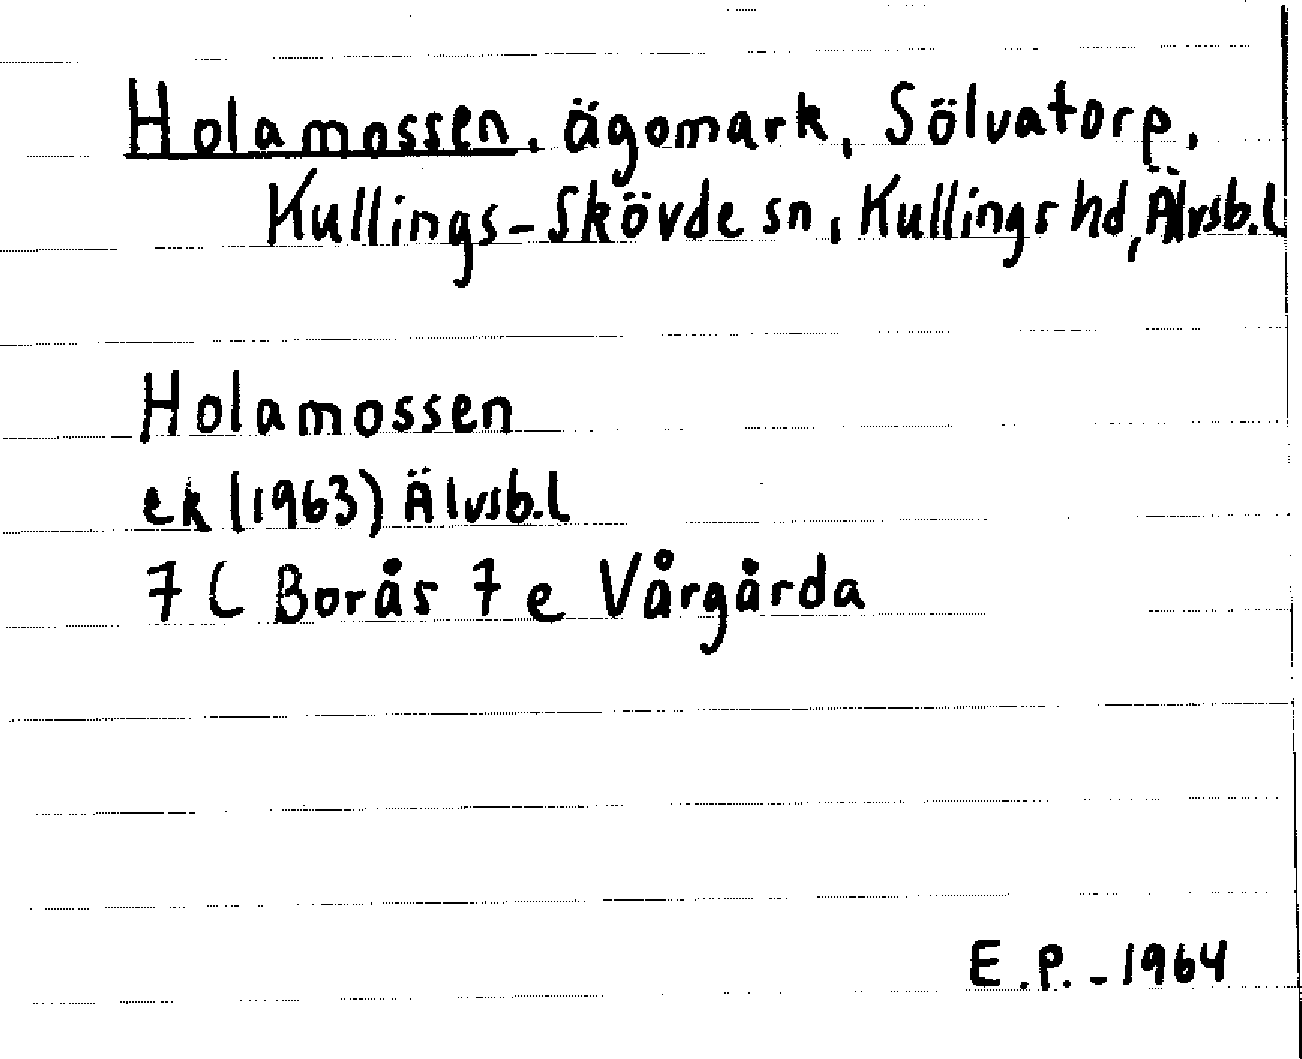 Holamossen, ägomark, Sölvatorp,
Kullings-Skövde sn, Kullings hd, Älvsb.l
Holamossen
ek (1963) Älvsb.l
7 C Borås 7 e Vårgårda
E.P. - 1964